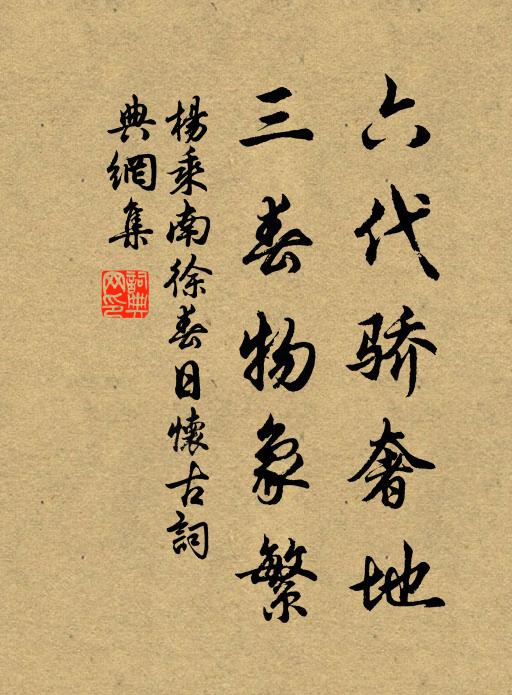 六代骄奢地
三春物象繁
楊乘南徐春日懷古詞
典網集
詞典網印